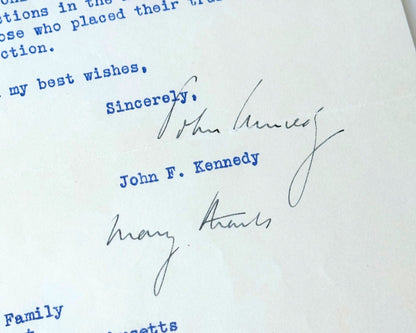 ctions in the
ose who placed their
ction.
my best wishes,
Sincerely,
John Kennedy
John F. Kennedy
many thanks
Family